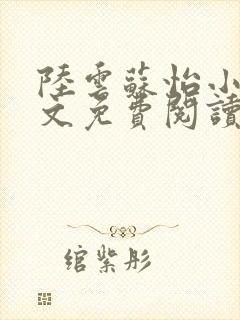 陸雲蘇怡小
文免費閱讀
綰紫彤